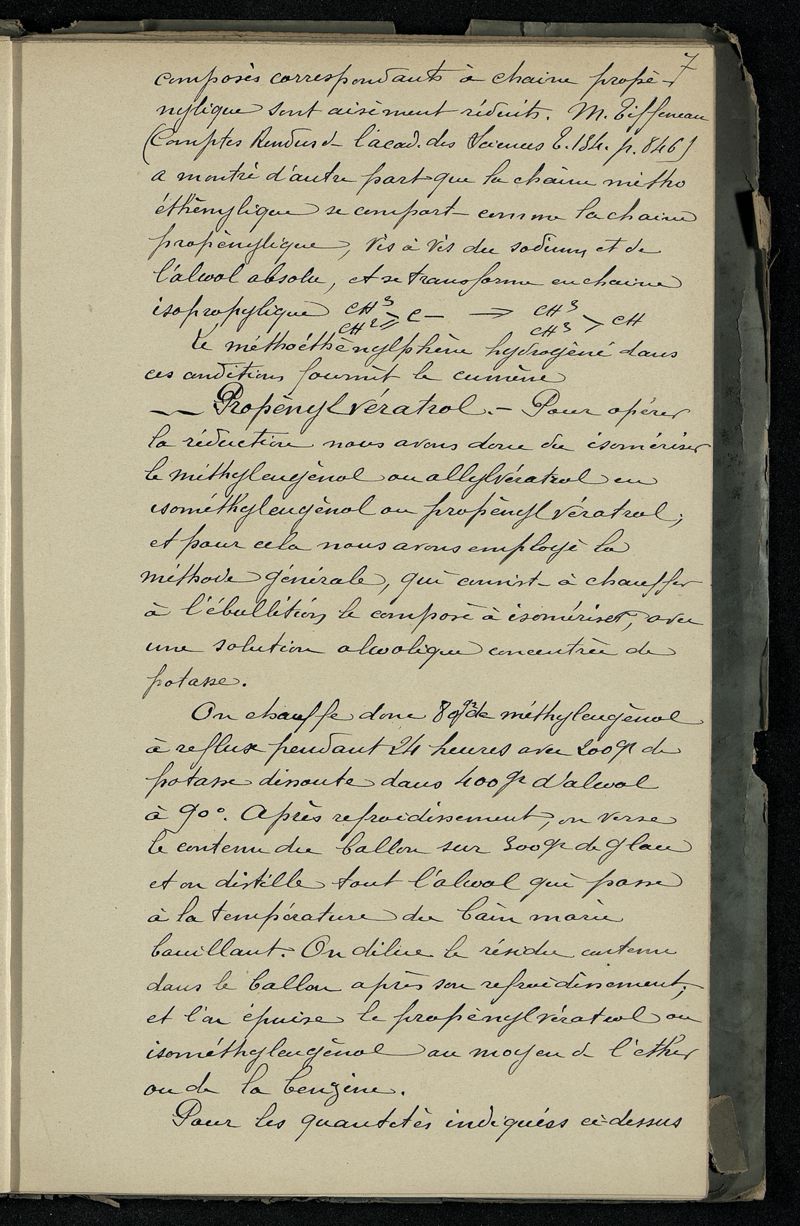 7
composés correspondants à chaine propé-
nylique sont aisément réduits. M. Tiffeneau
(Comptes Rendus d l'acad. des Sciences t. 134. p. 846)
a montré d'autre part que la chaîne métho
éthénylique se comport comme la chaine
propénylique, vis à vis du sodium et de
l'alcool absolu, et se transforme en chaine
isopropylique CH³ CH² ⩾ C — → CH³ CH³ > CH
Le méthoéthènylphène hydrogéné dans
ces conditions fournit le cumène
—— Propénylvératrol. — Pour opérer
la réduction nous avons donc du isomériser
le méthyleugénol ou allylvératrol en
isométhyleugénol ou propénylvératrol;
et pour cela nous avons employé la
méthode générale, qui consist à chauffer
à l'ébullition le composé à isomériser, avec
une solution alcoolique concentrée de
potasse.
On chauffe donc 80gr de méthyleugénol
à reflux pendant 24 heures avec 200gr de
potasse dissoute dans 400gr d'alcool
à 90°. Après refroidissement, on verse
le contenu du ballon sur 300gr de glace
et on distille tout l'alcool qui passe
à la température du bain marie
bouillant. On dilue le résidu contenu
dans le ballon après son refroidissement;
et l'on épuise le propénylvératrol ou
isométhyleugénol au moyen d l'ether
ou de la benzine.
Pour les quantités indiquées ci-dessus